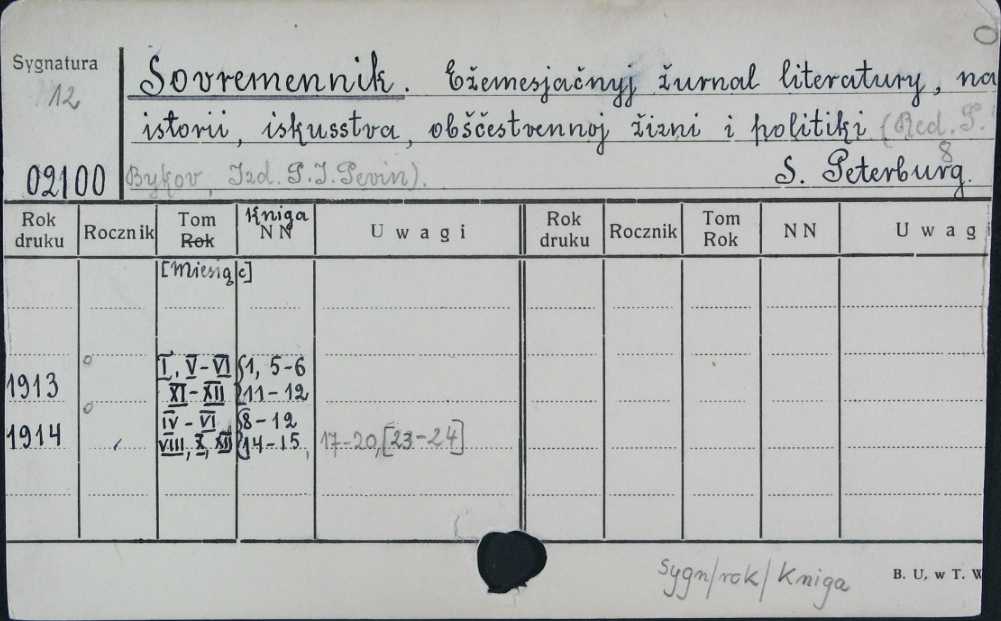 Sygnatura
12
02100
Sovremennik. Ežemesjačnyj žurnal literatury, na
istorii, iskusstva, obščestvennoj žizni i politiki (Red. P.
8
Bykov, Izd. P.I. Pevin). S. Peterburg.
Rok druku Rocznik Tom Rok Kniga NN Uwagi Rok druku Rocznik Tom Rok NN Uwag
[Miesiąc]
1913 I, V-VI 1, 5-6
XI-XII 11-12
1914 IV-VI 8-12
VIII, X, XII 14-15, 17-20, [23-24]
sygn/rok/Kniga
B. U. w T. W